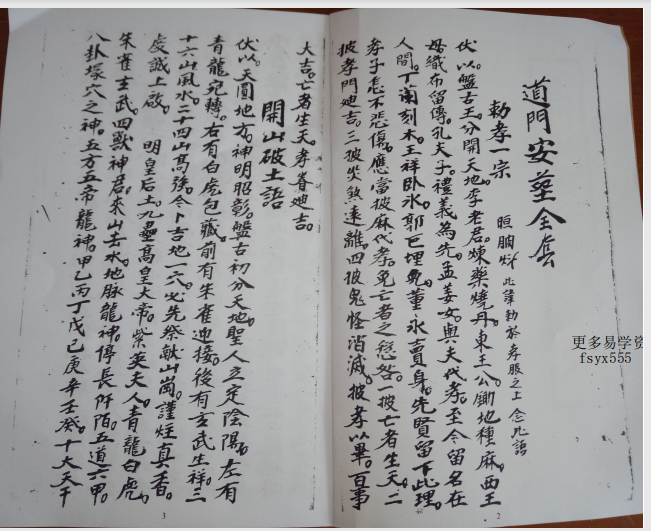 道門安墓全集
勅孝一宗
照胸 此諱勅於孝服之上念此語
伏以。盤古王。分開天地。李老君。煉藥燒丹。東王公。鋤地種麻。西王
母。織布留傳。孔夫子。禮義為先。孟姜女。與夫代孝。至今留名在
人間。丁蘭刻木。王祥卧冰。郭巨埋兒。董永賣身。先賢留下此理。
孝子怎不悲傷。應當披麻代孝。免亡者之愆咎。一披亡者生天。二
披孝門迪吉。三披災煞遠離。四披鬼怪消滅。披孝以畢。百事
大吉。亡者生天。孝眷迪吉。
開山破土語
伏以。天圓地方。神明昭彰。盤古初分天地。聖人立定陰陽。左有
青龍宛轉。右有白虎包藏。前有朱雀迎接。後有玄武生祥。三
十六山風水。二十四山高強。今卜吉地一穴。必先祭献山崗。謹炷真香。
虔誠上啟。 明皇后土。九壘高皇大帝。紫英夫人。青龍白虎。
朱雀玄武。四獸神君。來山去水。地脉龍神。傳長阡陌。五道六甲。
八卦塚穴之神。五方五帝龍神。甲乙丙丁戊己庚辛壬癸。十大天干
2
3
更多易学资
fsyx555